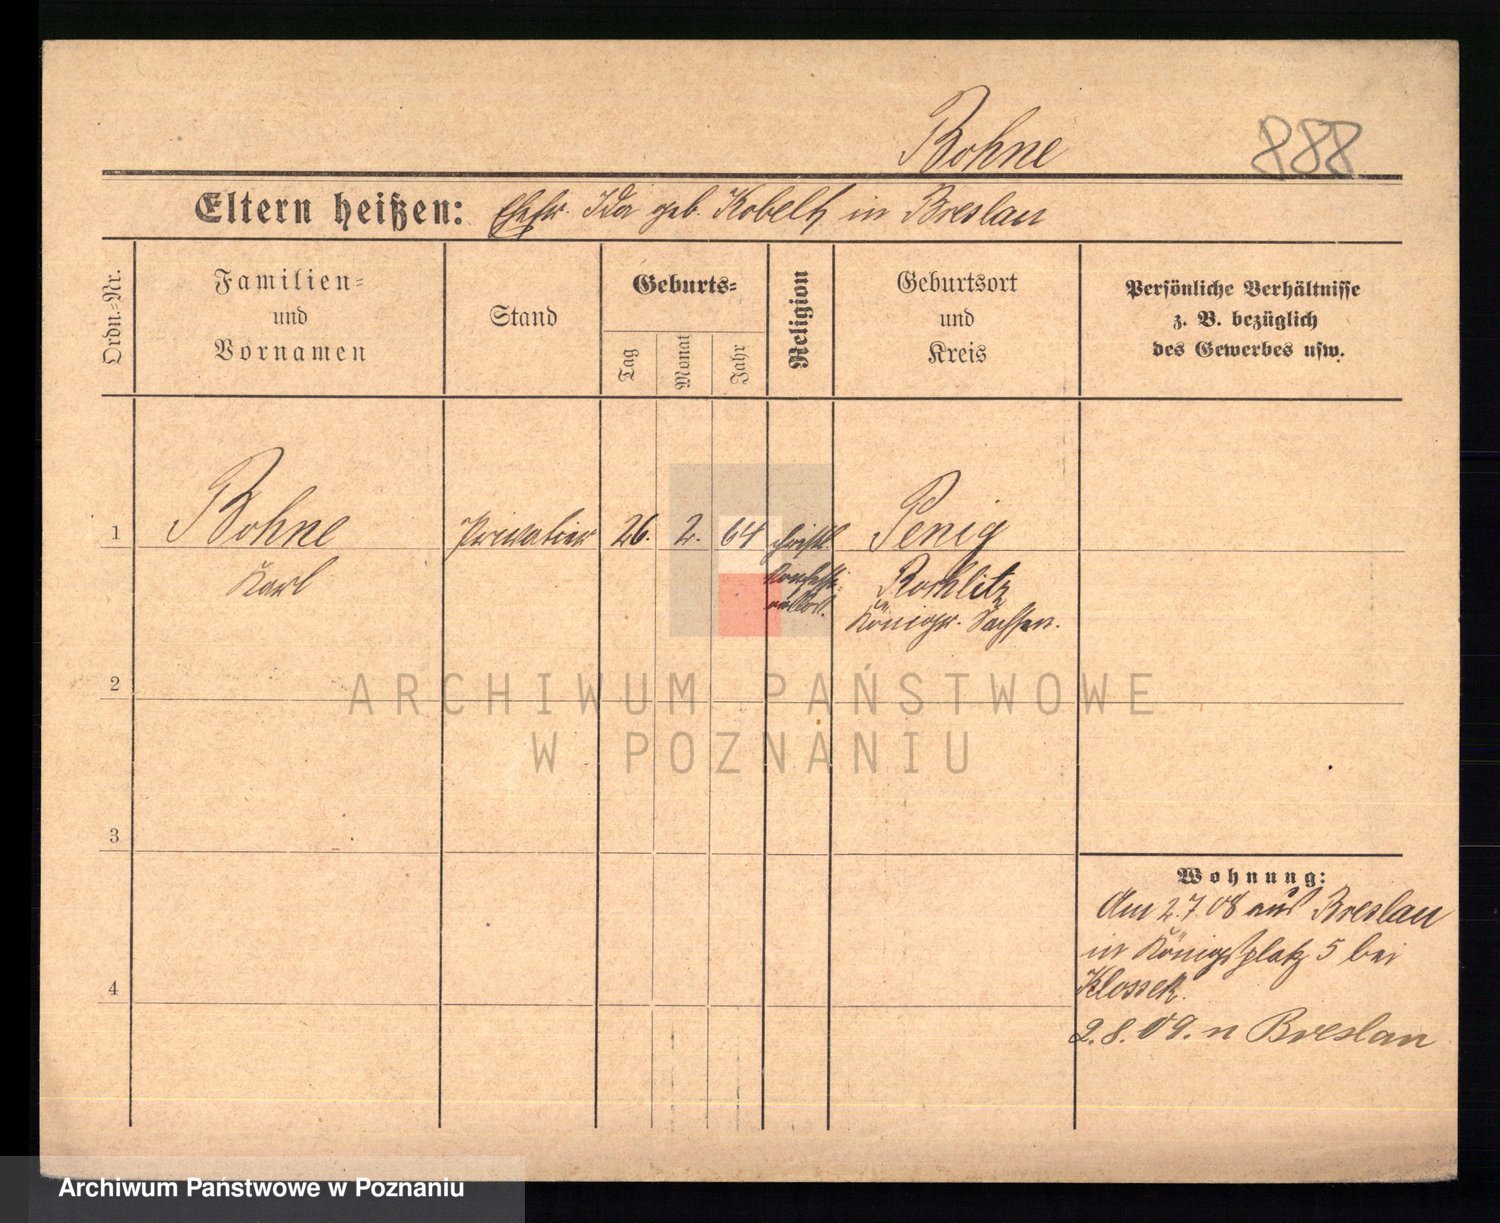 Bohne
888
Eltern heißen: Ehefr. Ida geb. Kobelt, in Breslau
Ordn.-Nr.
Familien-
und
Vornamen
Stand
Geburts-
Tag
Monat
Jahr
Religion
Geburtsort
und
Kreis
Persönliche Verhältnisse
z. B. bezüglich
des Gewerbes usw.
1
Bohne
Karl
Privatier
26.
2.
64
christl.
Penig
Rochlitz
Königr. Sachsen.
2
ARCHIWUM PAŃSTWOWE
W POZNANIU
3
4
Wohnung:
Am 2.7.08 aus Breslau
in Königsplatz 5 bei
Klossek.
2.8.09. n Breslau
Archiwum Państwowe w Poznaniu